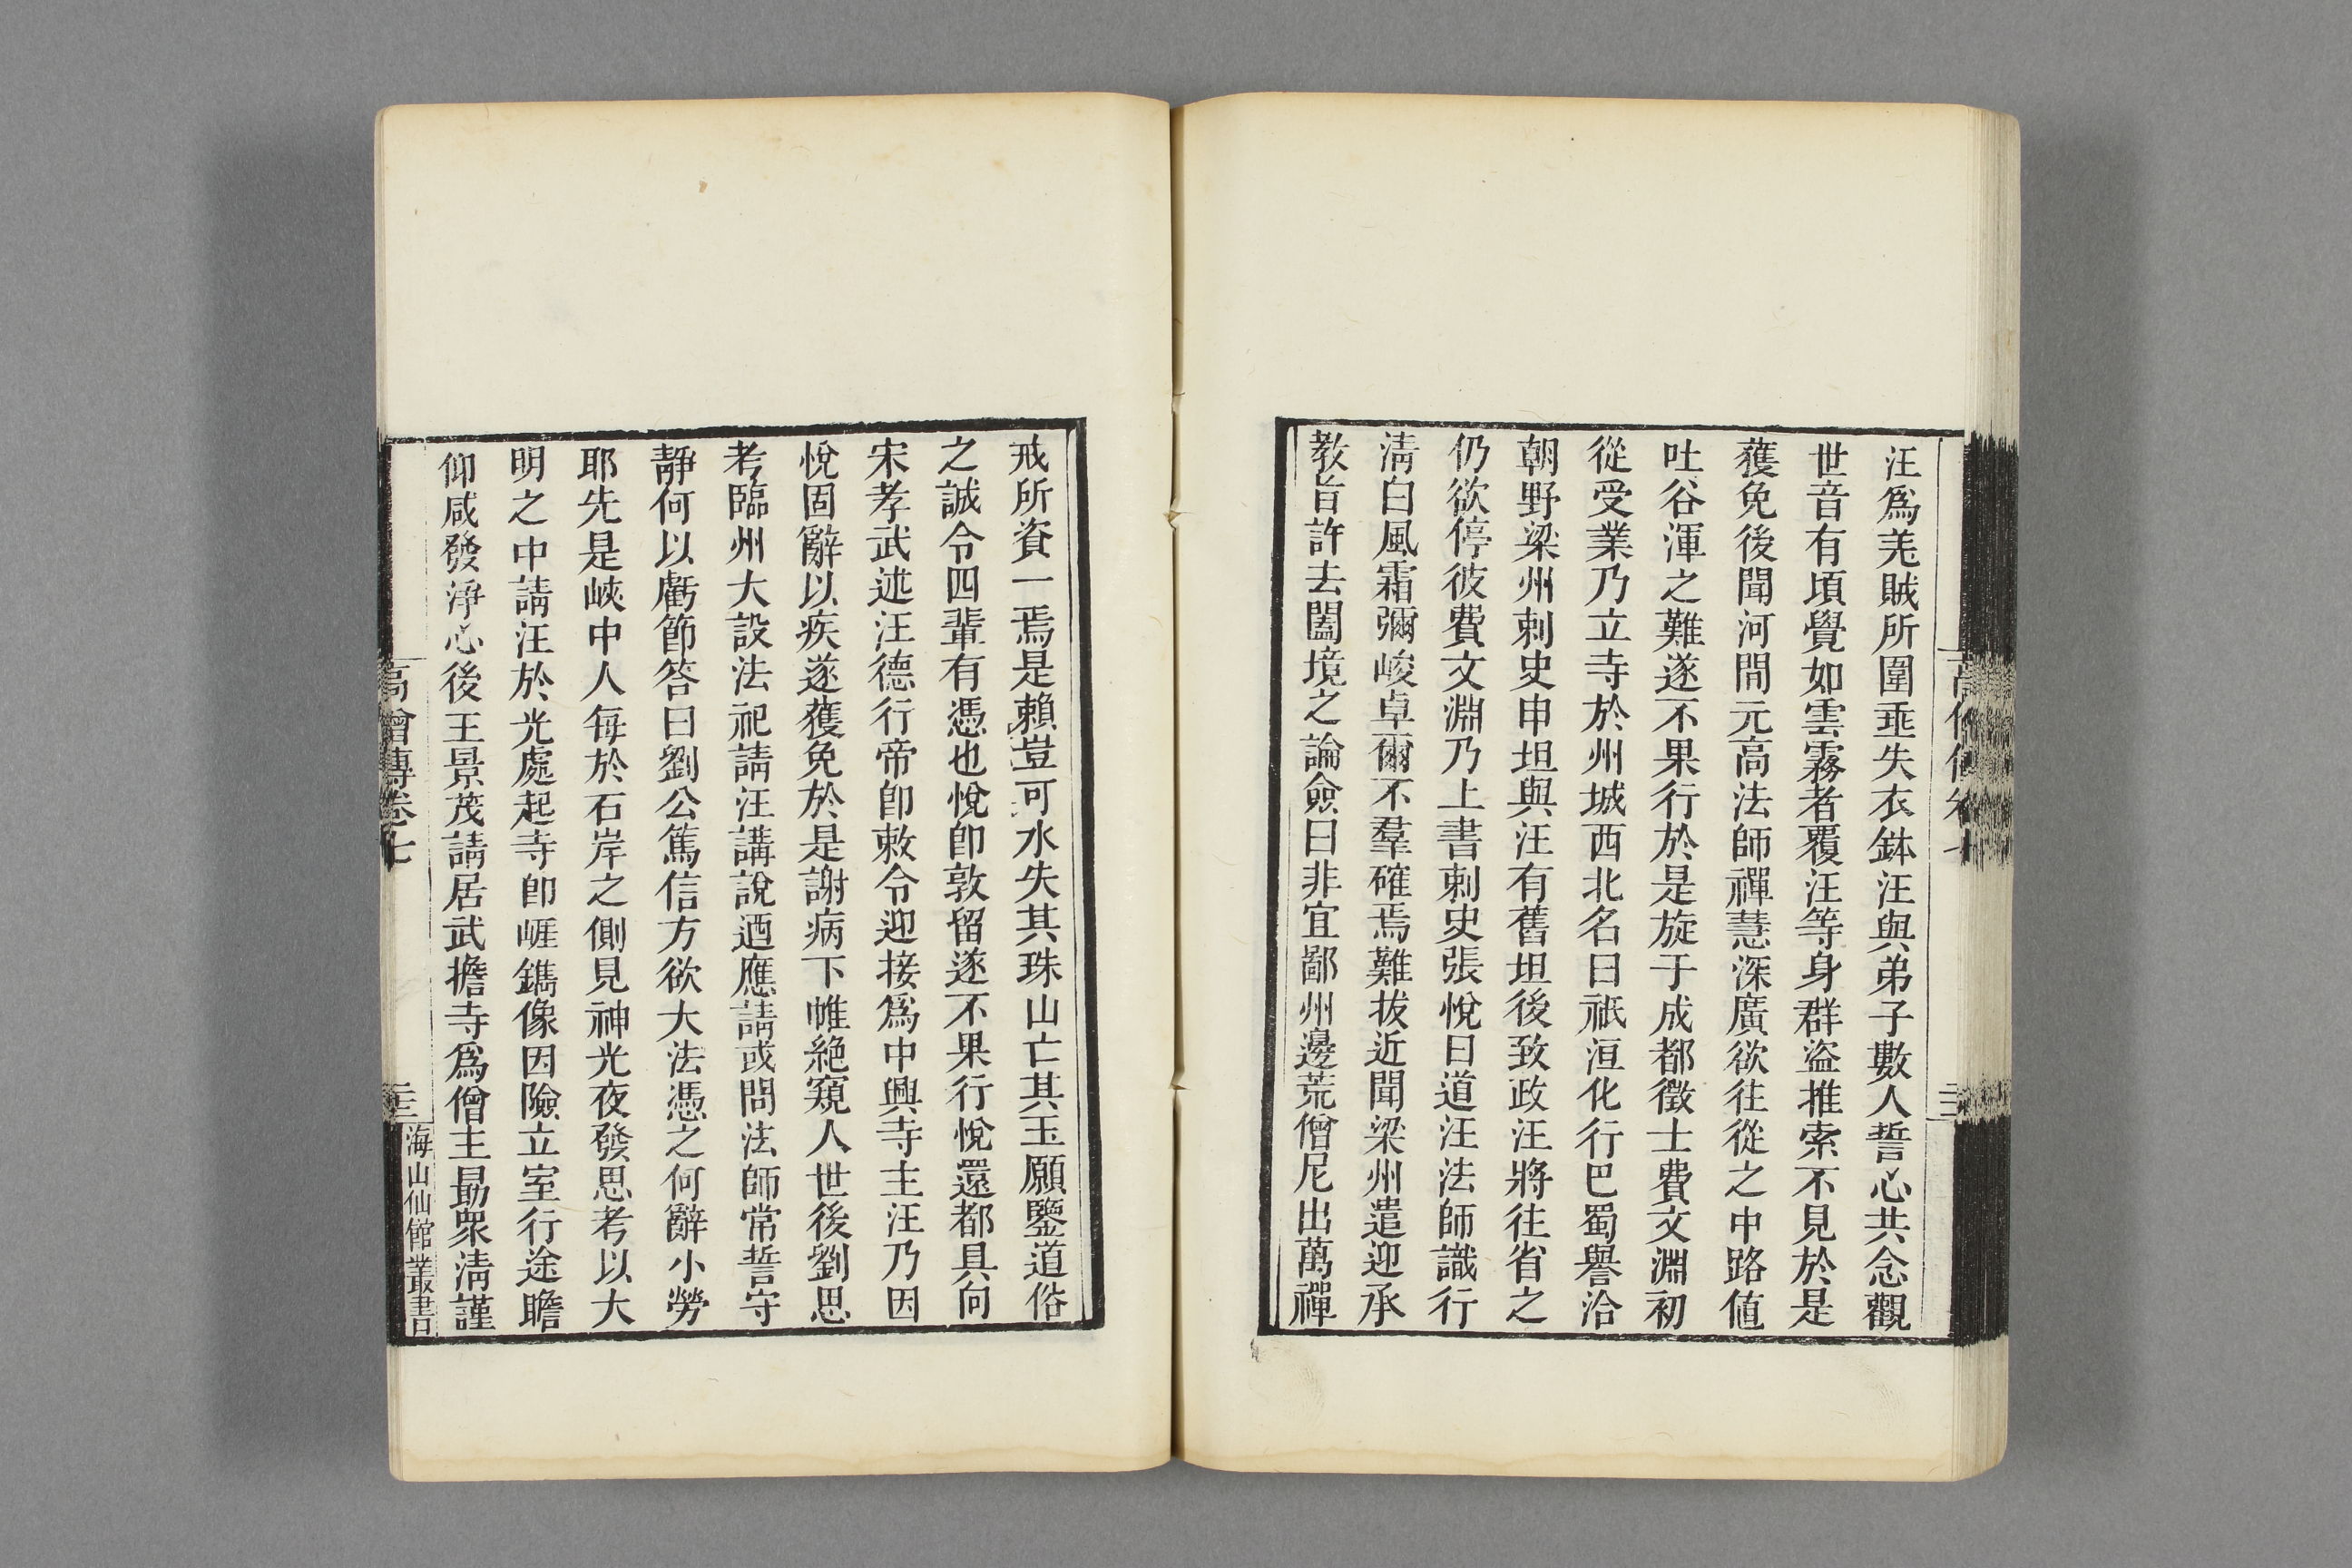 汪爲羌賊所圍乖失衣鉢汪與弟子數人誓心共念觀
世音有頃覺如雲霧者覆汪等身群盜推索不見於是
獲免後聞河間元高法師禪慧深廣欲往從之中路值
吐谷渾之難遂不果行於是旋于成都徵士費文淵初
從受業乃立寺於州城西北名曰祇洹化行巴蜀譽洽
朝野梁州刺史申坦與汪有舊坦後致政汪將往省之
仍欲停彼費文淵乃上書刺史張悅曰道汪法師識行
淸白風霜彌峻卓爾不羣確焉難拔近聞梁州遣迎承
教旨許去闔境之論僉曰非宜鄙州邊荒僧尼出萬禪
戒所資一焉是賴豈可水失其珠山亡其玉願鑒道俗
之誠令四輩有憑也悅卽敦留遂不果行悅還都具向
宋孝武述汪德行帝卽敕令迎接爲中興寺主汪乃因
悅固辭以疾遂獲免於是謝病下帷絶窺人世後劉思
考臨州大設法祀請汪講說迺應請或問法師常誓守
靜何以虧節答曰劉公篤信方欲大法憑之何辭小勞
耶先是峽中人每於石岸之側見神光夜發思考以大
明之中請汪於光處起寺卽崕鐫像因險立室行途瞻
仰咸發淨心後王景茂請居武擔寺爲僧主勗衆淸謹
高僧傳卷七
海山仙館叢書